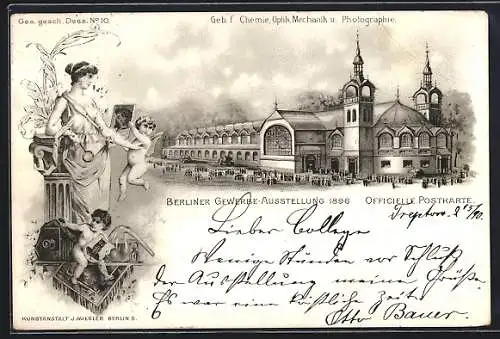 Ges. gesch. Dess. No 10.
Geb. f. Chemie, Optik, Mechanik u. Photographie.
BERLINER GEWERBE-AUSSTELLUNG 1896 OFFICIELLE POSTKARTE.
Treptow. 2 15/10.
Lieber College
Wenige Stunden vor Schluß
der Ausstellung meine Grüße.
Es war eine köstliche Zeit.
Otto Bauer.
KUNSTANSTALT J. MIESLER BERLIN S.